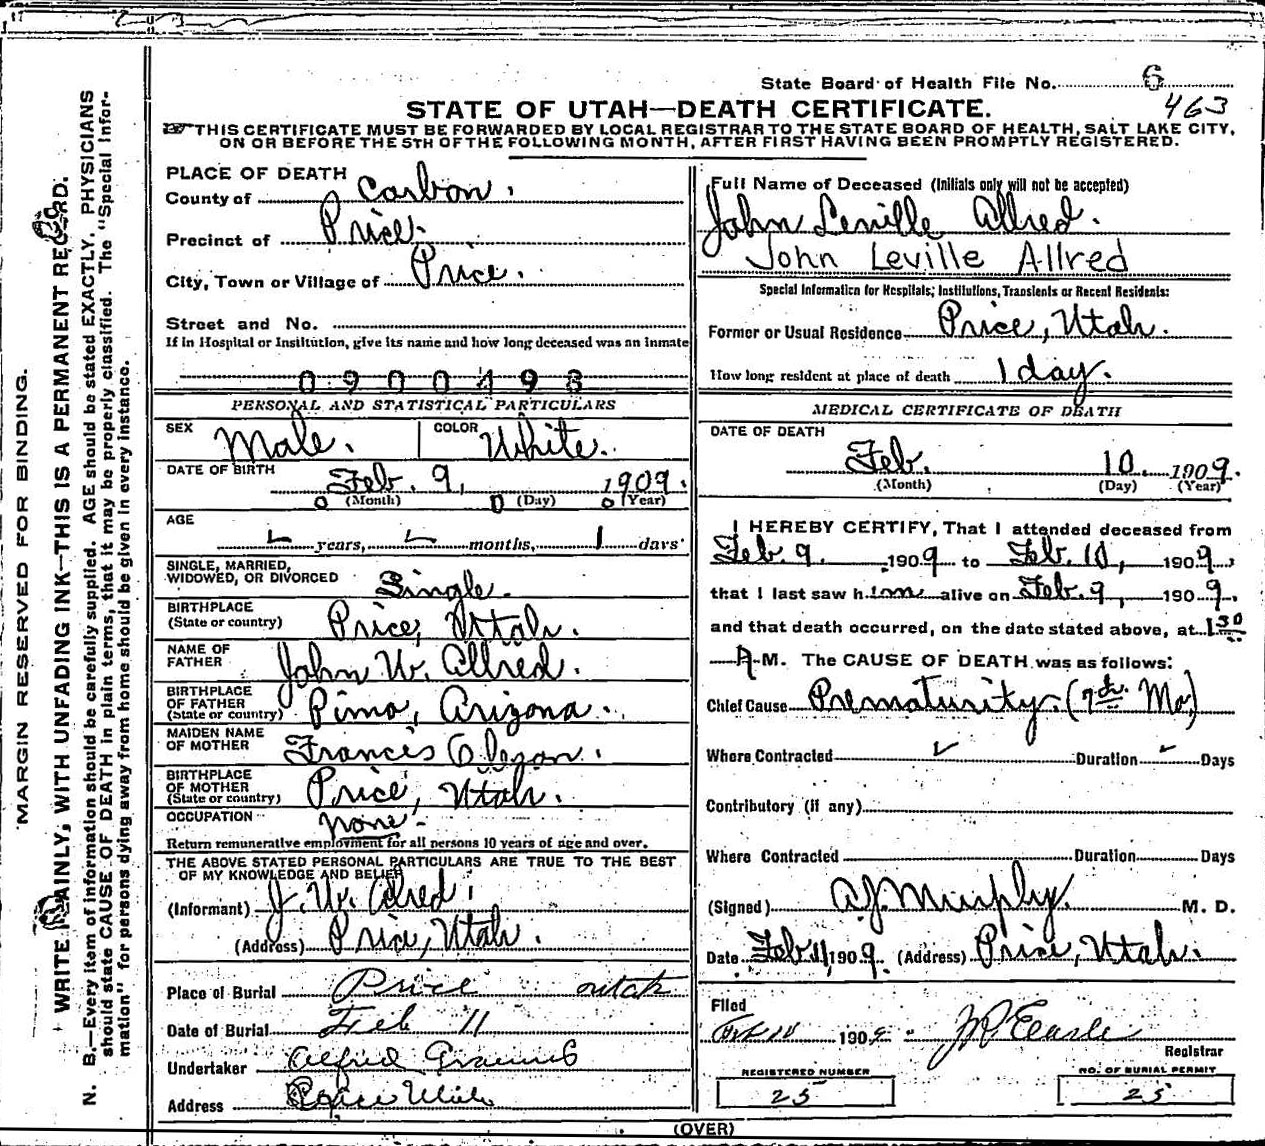 State Board of Health File No. 6
463
STATE OF UTAH—DEATH CERTIFICATE.
THIS CERTIFICATE MUST BE FORWARDED BY LOCAL REGISTRAR TO THE STATE BOARD OF HEALTH, SALT LAKE CITY,
ON OR BEFORE THE 5TH OF THE FOLLOWING MONTH, AFTER FIRST HAVING BEEN PROMPTLY REGISTERED.
MARGIN RESERVED FOR BINDING.
WRITE PLAINLY, WITH UNFADING INK—THIS IS A PERMANENT RECORD.
N. B.—Every item of information should be carefully supplied. AGE should be stated EXACTLY. PHYSICIANS
should state CAUSE OF DEATH in plain terms, that it may be properly classified. The "Special Infor-
mation" for persons dying away from home should be given in every instance.
PLACE OF DEATH
County of Carbon.
Precinct of Price.
City, Town or Village of Price.
Street and No.
If in Hospital or Institution, give its name and how long deceased was an inmate
0900493
PERSONAL AND STATISTICAL PARTICULARS
SEX Male. COLOR White.
DATE OF BIRTH
Feb. 9, 1909.
(Month) (Day) (Year)
AGE
years, months, 1 days
SINGLE, MARRIED,
WIDOWED, OR DIVORCED Single.
BIRTHPLACE
(State or country) Price, Utah.
NAME OF
FATHER John W. Allred.
BIRTHPLACE
OF FATHER
(State or country) Pima, Arizona.
MAIDEN NAME
OF MOTHER Francis Olson.
BIRTHPLACE
OF MOTHER
(State or country) Price, Utah.
OCCUPATION none.
Return remunerative employment for all persons 10 years of age and over.
THE ABOVE STATED PERSONAL PARTICULARS ARE TRUE TO THE BEST
OF MY KNOWLEDGE AND BELIEF
(Informant) J. W. Allred.
(Address) Price, Utah.
Place of Burial Price utah
Date of Burial Feb 11
Undertaker Alfred
Address Price Utah
Full Name of Deceased (Initials only will not be accepted)
John Leville Allred.
John Leville Allred
Special Information for Hospitals, Institutions, Transients or Recent Residents:
Former or Usual Residence Price, Utah.
How long resident at place of death 1 day.
MEDICAL CERTIFICATE OF DEATH
DATE OF DEATH
Feb. 10. 1909.
(Month) (Day) (Year)
I HEREBY CERTIFY, That I attended deceased from
Feb. 9. 1909 to Feb. 10, 1909,
that I last saw him alive on Feb. 9, 1909.
and that death occurred, on the date stated above, at 1 30
A M. The CAUSE OF DEATH was as follows:
Chief Cause Prematurity. (7th. Mo.)
Where Contracted Duration Days
Contributory (if any)
Where Contracted Duration Days
(Signed) A.J. Murphy. M. D.
Date Feb 11, 1909. (Address) Price, Utah.
Filed
1909
Registrar
REGISTERED NUMBER
25
NO. OF BURIAL PERMIT
25
(OVER)